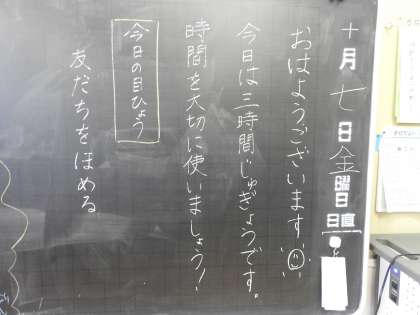 十月七日金曜日
日直
おはようございます
今日は三時間じゅぎょうです。
時間を大切に使いましょう！
今日の目ひょう
友だちをほめる